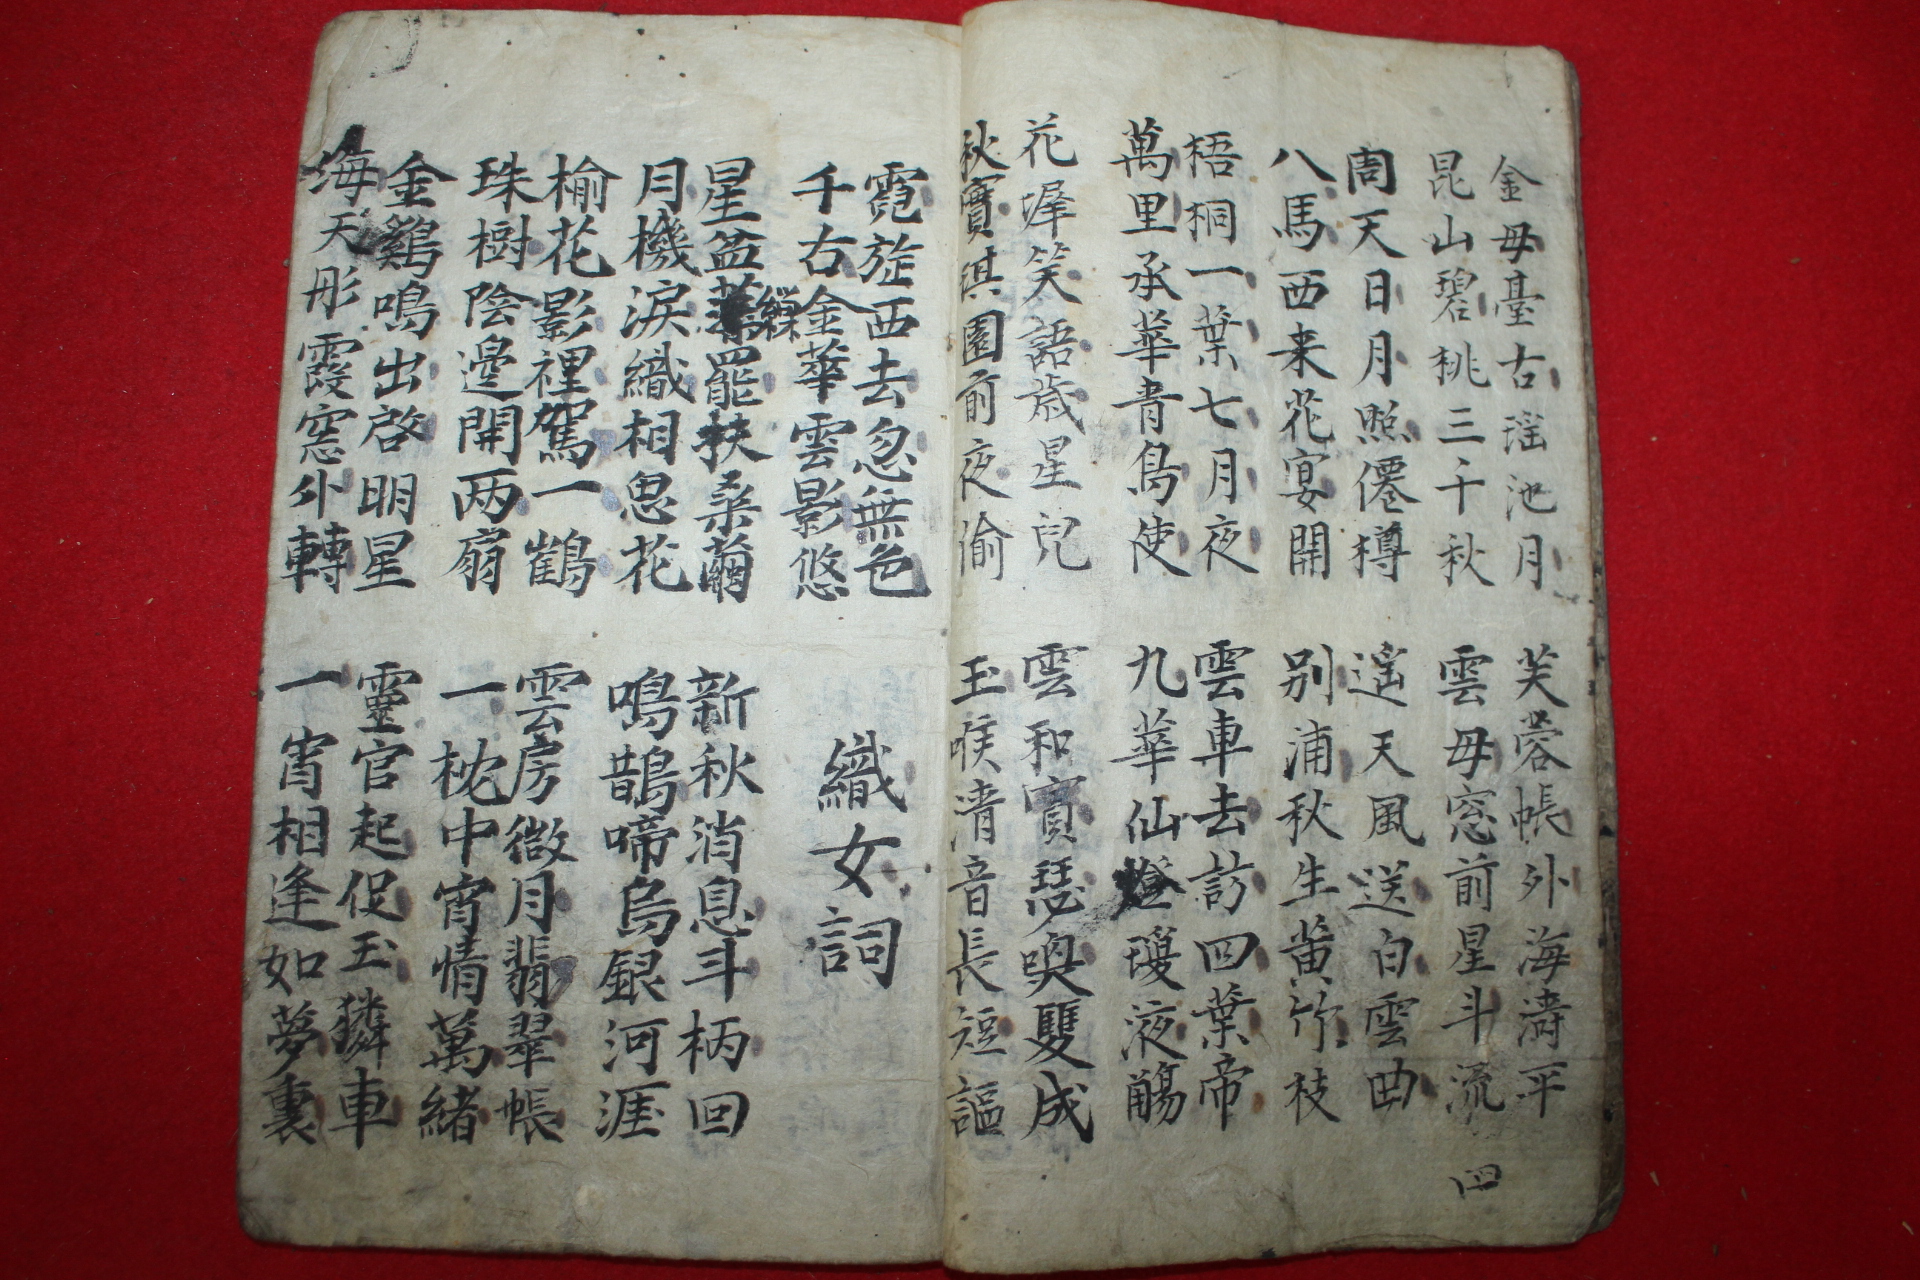 金母臺古瑤池月
昆山碧桃三千秋
芙蓉帳外海濤平
雲母窓前星斗流
周天日月照僊樽
八馬西来花宴開
遙天風送白雲曲
别浦秋生黃竹枝
梧桐一葉七月夜
萬里承華青鳥使
雲車去訪四葉帝
九華仙燈瓊液觴
花墀笑語歲星兒
秋實淇園前夜偷
雲和寶瑟喚雙成
玉喉清音長短謳
四
霓旌西去忽無色
千右金華雲影悠
織女詞
星盆繅罷扶桑繭
月機淚織相思花
新秋消息斗柄回
鳴鵲啼烏銀河涯
榆花影裡駕一鶴
珠樹陰邊開两扇
雲房微月翡翠帳
一枕中宵情萬緒
金鷄鳴出啓明星
海天彤霞窓外轉
靈官起促玉轔車
一宵相逢如夢裏